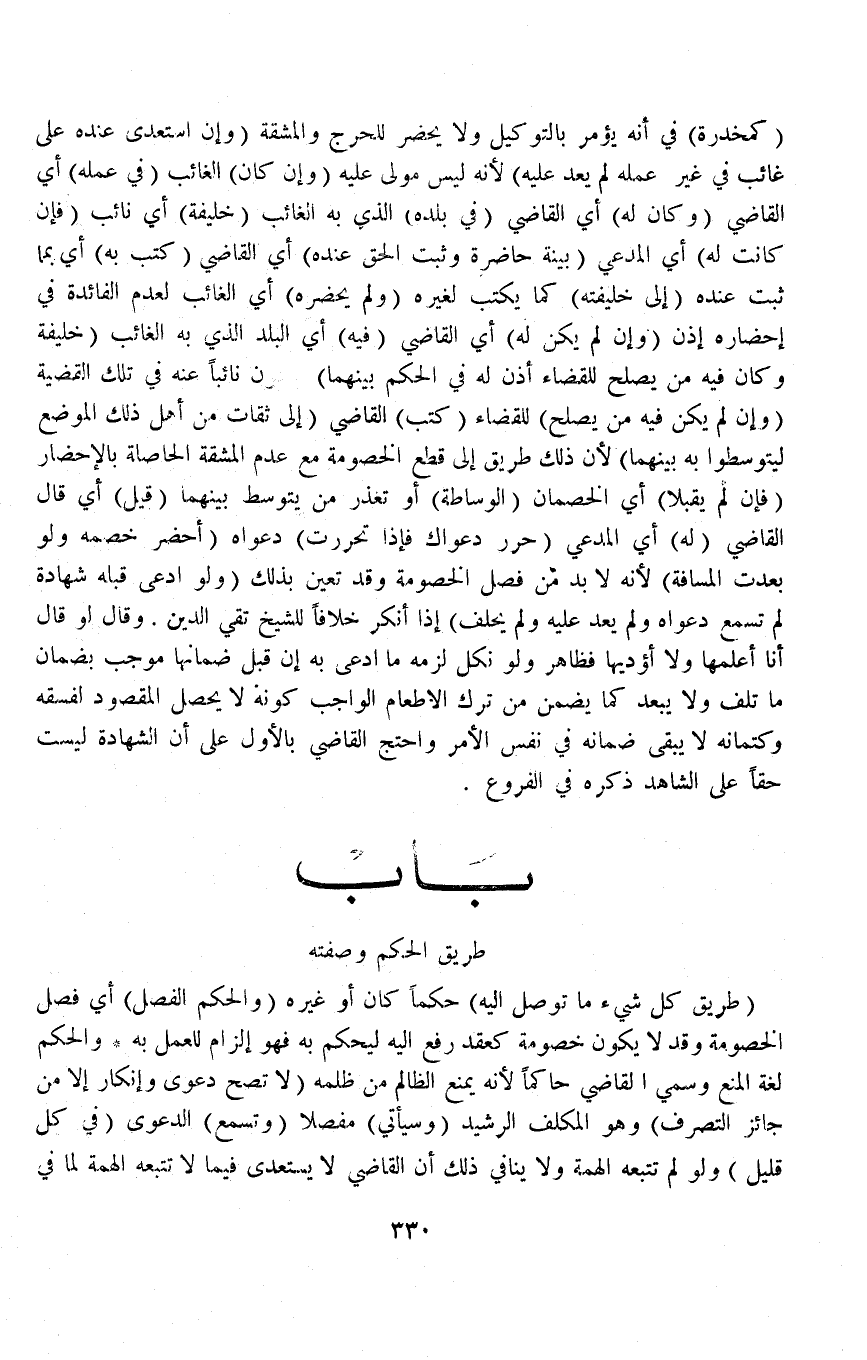 ( كمخدرة) في أنه يؤمر بالتوكيل ولا يحضر للحرج والمشقة ( وإن استعدى عنده على
غائب في غير عمله لم يعد عليه) لأنه ليس مولى عليه ( وإن كان) الغائب ( في عمله) أي
القاضي ( وكان له) أي القاضي ( في بلده) الذي به الغائب ( خليفة) أي نائب ( فإن
كانت له) أي المدعي ( بينة حاضرة وثبت الحق عنده) أي القاضي ( كتب به) أي بما
ثبت عنده ( إلى خليفته) كما يكتب لغيره ( ولم يحضره) أي الغائب لعدم الفائدة في
إحضاره إذن ( وإن لم يكن له) أي القاضي ( فيه) أي البلد الذي به الغائب ( خليفة
وكان فيه من يصلح للقضاء أذن له في الحكم بينهما) ن نائباً عنه في تلك القضية
( وإن لم يكن فيه من يصلح) للقضاء ( كتب) القاضي ( إلى ثقات من أهل ذلك الموضع
ليتوسطوا به بينهما) لأن ذلك طريق إلى قطع الخصومة مع عدم المشقة الحاصلة بالإحضار
( فإن لم يقبلا) أي الخصمان ( الوساطة) أو تعذر من يتوسط بينهما ( قيل) أي قال
القاضي ( له) أي المدعي ( حرر دعواك فإذا تحررت) دعواه ( أحضر خصمه ولو
بعدت المسافة) لأنه لا بد من فصل الخصومة وقد تعين بذلك ( ولو ادعى قبله شهادة
لم تسمع دعواه ولم يعد عليه ولم يحلف) إذا أنكر خلافاً للشيخ تقي الدين . وقال لو قال
أنا أعلمها ولا أؤديها فظاهر ولو نكل لزمه ما ادعى به إن قبل ضمانها موجب بضمان
ما تلف ولا يبعد كما يضمن من ترك الاطعام الواجب كونه لا يحصل المقصود لفسقه
وكتمانه لا يبقى ضمانه في نفس الأمر واحتج القاضي بالأول على أن الشهادة ليست
حقاً على الشاهد ذكره في الفروع .
بَابْ
طريق الحكم وصفته
( طريق كل شيء ما توصل اليه) حكماً كان أو غيره ( والحكم الفصل) أي فصل
الخصومة وقد لا يكون خصومة كعقد رفع اليه ليحكم به فهو إلزام للعمل به * والحكم
لغة المنع وسمي ا لقاضي حاكماً لأنه يمنع الظالم من ظلمه ( لا تصح دعوى وإنكار إلا من
جائز التصرف) وهو المكلف الرشيد ( وسيأتي) مفصلا ( وتسمع) الدعوى ( في كل
قليل ) ولو لم تتبعه الهمة ولا ينافي ذلك أن القاضي لا يستعدى فيما لا تتبعه الهمة لما في
٣٣٠